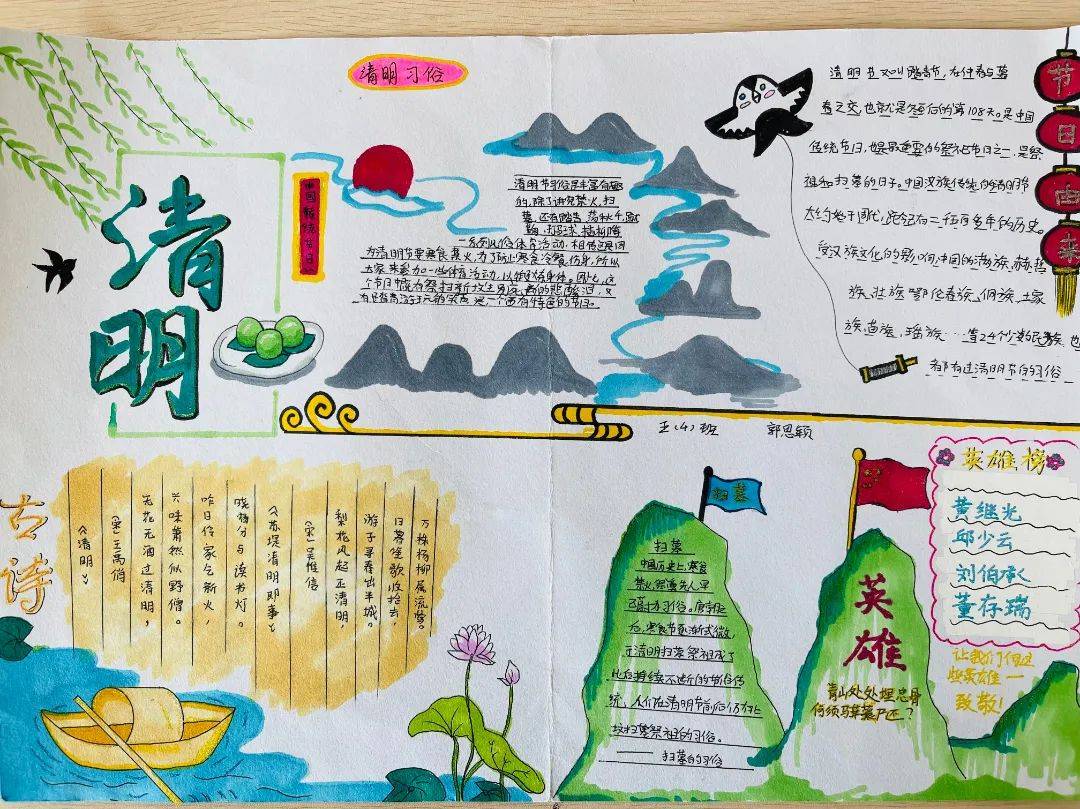 清明习俗
清明
中国传统节日
清明节习俗是丰富有趣
的,除了讲究禁火,扫
墓,还有踏青,荡秋千,蹴
鞠,打马球,插柳等
一系列风俗体育活动,相传这是因
为清明节要寒食禁火,为了防止寒食冷餐伤身,所以
大家来参加一些体育活动,以锻炼身体。因此,这
个节日
是一个富有特色的节日。
清明节又叫踏青节,在仲春与暮
春之交,也就是冬至后的第108天。是中国
传统节日,也是最重要的祭祀节日之一,是祭
祖和扫墓的日子。中国汉族传统的清明节
大约始于周代,距今有二千五百多年的历史。
受汉族文化的影响,中国的满族、赫哲
族、壮族、鄂伦春族、侗族、土家
族、苗族、瑶族……等24个少数民族,也
都有过清明节的习俗
节日由来
五(4)班 郭思颖
古诗
万株杨柳属流莺。
日暮笙歌收拾去,
游子寻春出半城。
梨花风起正清明,
(宋)吴惟信
《苏堤清明即事》
晓窗分与读书灯。
昨日作家乞新火,
兴味萧然似野僧。
无花无酒过清明,
(宋)王禹俏
《清明》
扫墓
扫墓
中国历史上,寒食
禁火,祭奠先人早
已蔚为习俗。唐朝
后,寒食节逐渐式微
于清明扫墓祭祖成了
此后持续不断的节俗传
统,人们在清明节前后仍有上
坟扫墓祭祖的习俗。
——扫墓的习俗
英雄
青山处处埋忠骨
何须马革裹尸还?
英雄榜
黄继光
邱少云
刘伯承
董存瑞
让我们向这
些英雄一
致敬!